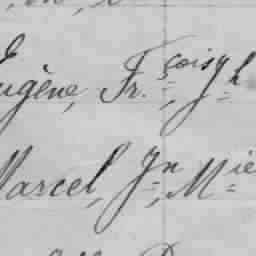 Eugène, Fr.çois, J
Marcel, Jn, Mie